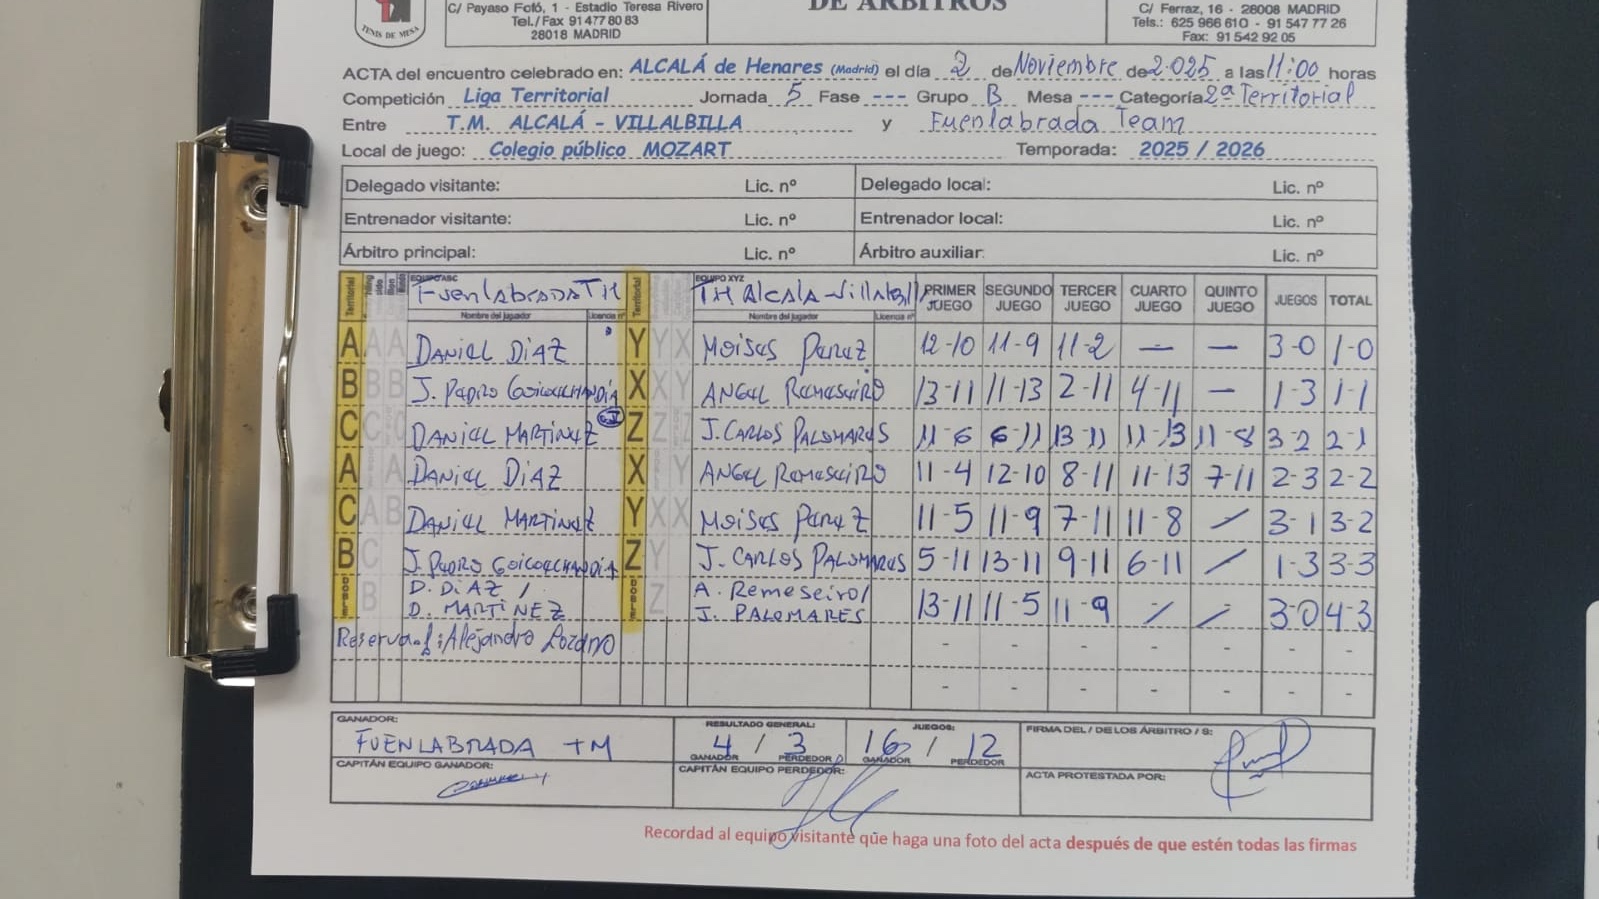 C/ Payaso Fofó, 1 - Estadio Teresa Rivero
Tel./Fax 91 477 80 83
28018 MADRID
TENIS DE MESA
DE ÁRBITROS
C/ Ferraz, 16 - 28008 MADRID
Tels.: 625 966 610 - 91 547 77 26
Fax: 91 542 92 05
ACTA del encuentro celebrado en: ALCALÁ de Henares (Madrid) el día 2 de Noviembre de 2.025 a las 11:00 horas
Competición Liga Territorial Jornada 5 Fase --- Grupo B Mesa --- Categoría 2ª Territorial
Entre T.M. ALCALÁ - VILLALBILLA y Fuenlabrada Team
Local de juego: Colegio público MOZART Temporada: 2025 / 2026
Delegado visitante: Lic. nº Delegado local: Lic. nº
Entrenador visitante: Lic. nº Entrenador local: Lic. nº
Árbitro principal: Lic. nº Árbitro auxiliar: Lic. nº
Territorial EQUIPO ABC Fuenlabrada TM Territorial EQUIPO XYZ TM Alcala-Villalbill PRIMER JUEGO SEGUNDO JUEGO TERCER JUEGO CUARTO JUEGO QUINTO JUEGO JUEGOS TOTAL
Nombre del jugador Licencia nº Nombre del jugador Licencia nº
A DANIEL DIAZ Y MOISES PEREZ 12-10 11-9 11-2 — — 3-0 1-0
B J. PEDRO GOICOECHANDIA X ANGEL REMESEIRO 13-11 11-13 2-11 4-11 — 1-3 1-1
C DANIEL MARTINEZ Z J. CARLOS PALOMARES 11-6 6-11 13-11 11-13 11-8 3-2 2-1
A DANIEL DIAZ X ANGEL REMESEIRO 11-4 12-10 8-11 11-13 7-11 2-3 2-2
C DANIEL MARTINEZ Y MOISES PEREZ 11-5 11-9 7-11 11-8 / 3-1 3-2
B J. PEDRO GOICOECHANDIA Z J. CARLOS PALOMARES 5-11 13-11 9-11 6-11 / 1-3 3-3
DOBLE D. DIAZ / D. MARTINEZ DOBLE A. Remeseiro/ J. PALOMARES 13-11 11-5 11-9 / / 3-0 4-3
Reserva : Alejandro Lozano
GANADOR: FUENLABRADA TM RESULTADO GENERAL: 4 / 3 JUEGOS: 16 / 12 FIRMA DEL / DE LOS ÁRBITRO / S:
GANADOR PERDEDOR GANADOR PERDEDOR
CAPITÁN EQUIPO GANADOR: CAPITÁN EQUIPO PERDEDOR: ACTA PROTESTADA POR:
Recordad al equipo visitante que haga una foto del acta después de que estén todas las firmas